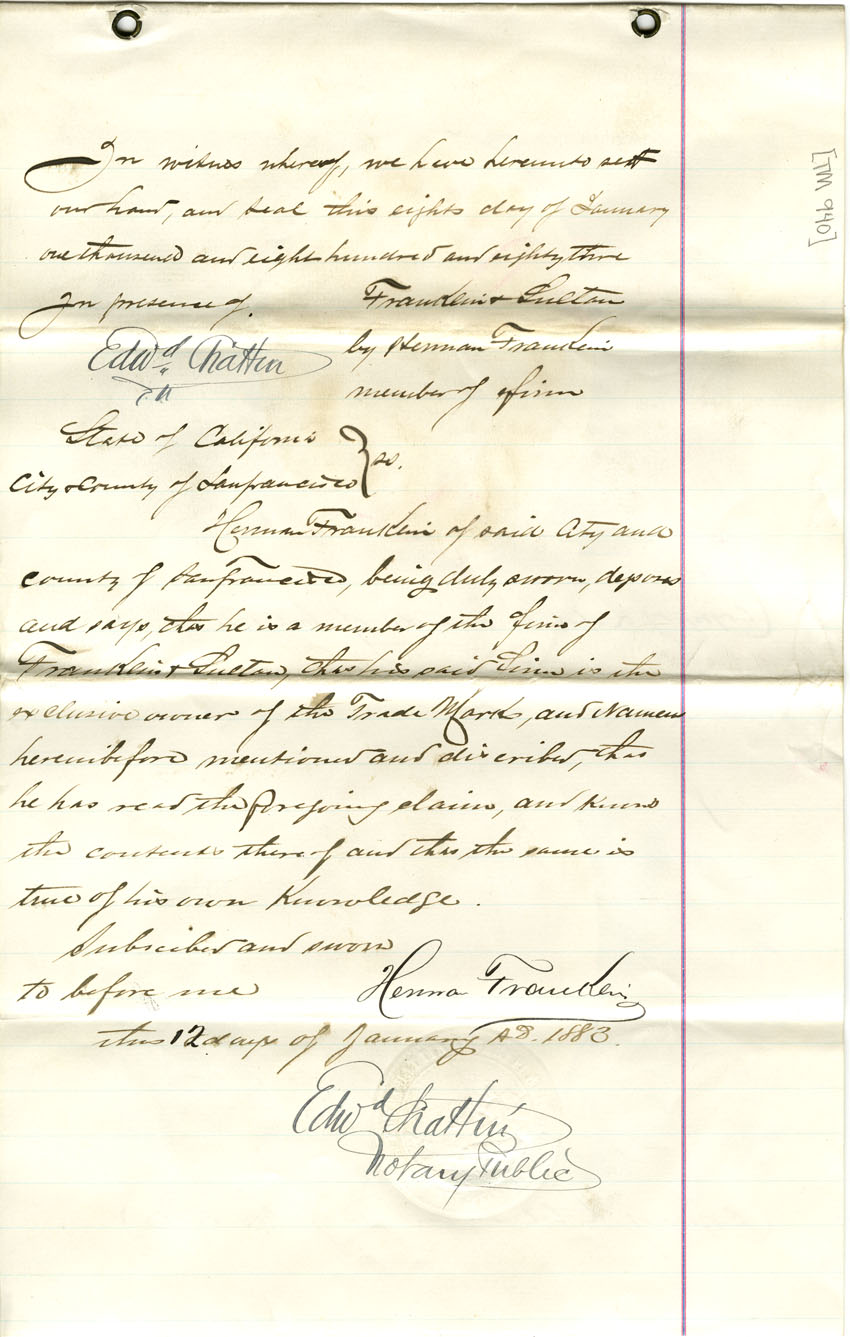 In witness whereof, we have hereunto sett
our hand, and seal this eights day of January
one thousend and eight hundred and eighty three
In presence of. Franklin & Sultan
Edwd Chattin by Herman Franklin
member of firm
State of California
City & County of Sanfrancisco } ss.
Herman Franklin of said City and
county of Sanfrancisco, being duly sworn, deposes
and says, that he is a member of the firm of
Franklin & Sultan, that his said Firm is the
exclusive owner of the Trade Mark, and Names
hereinbefore mentioned and discribed, that
he has read the foregoing claim, and knows
the contents thereof and that the same is
true of his own Knowledge.
Subscibed and sworn
to before me Herman Franklin
this 12 days of January AD. 1883.
Edwd Chattin
Notary Public
[TM 940]